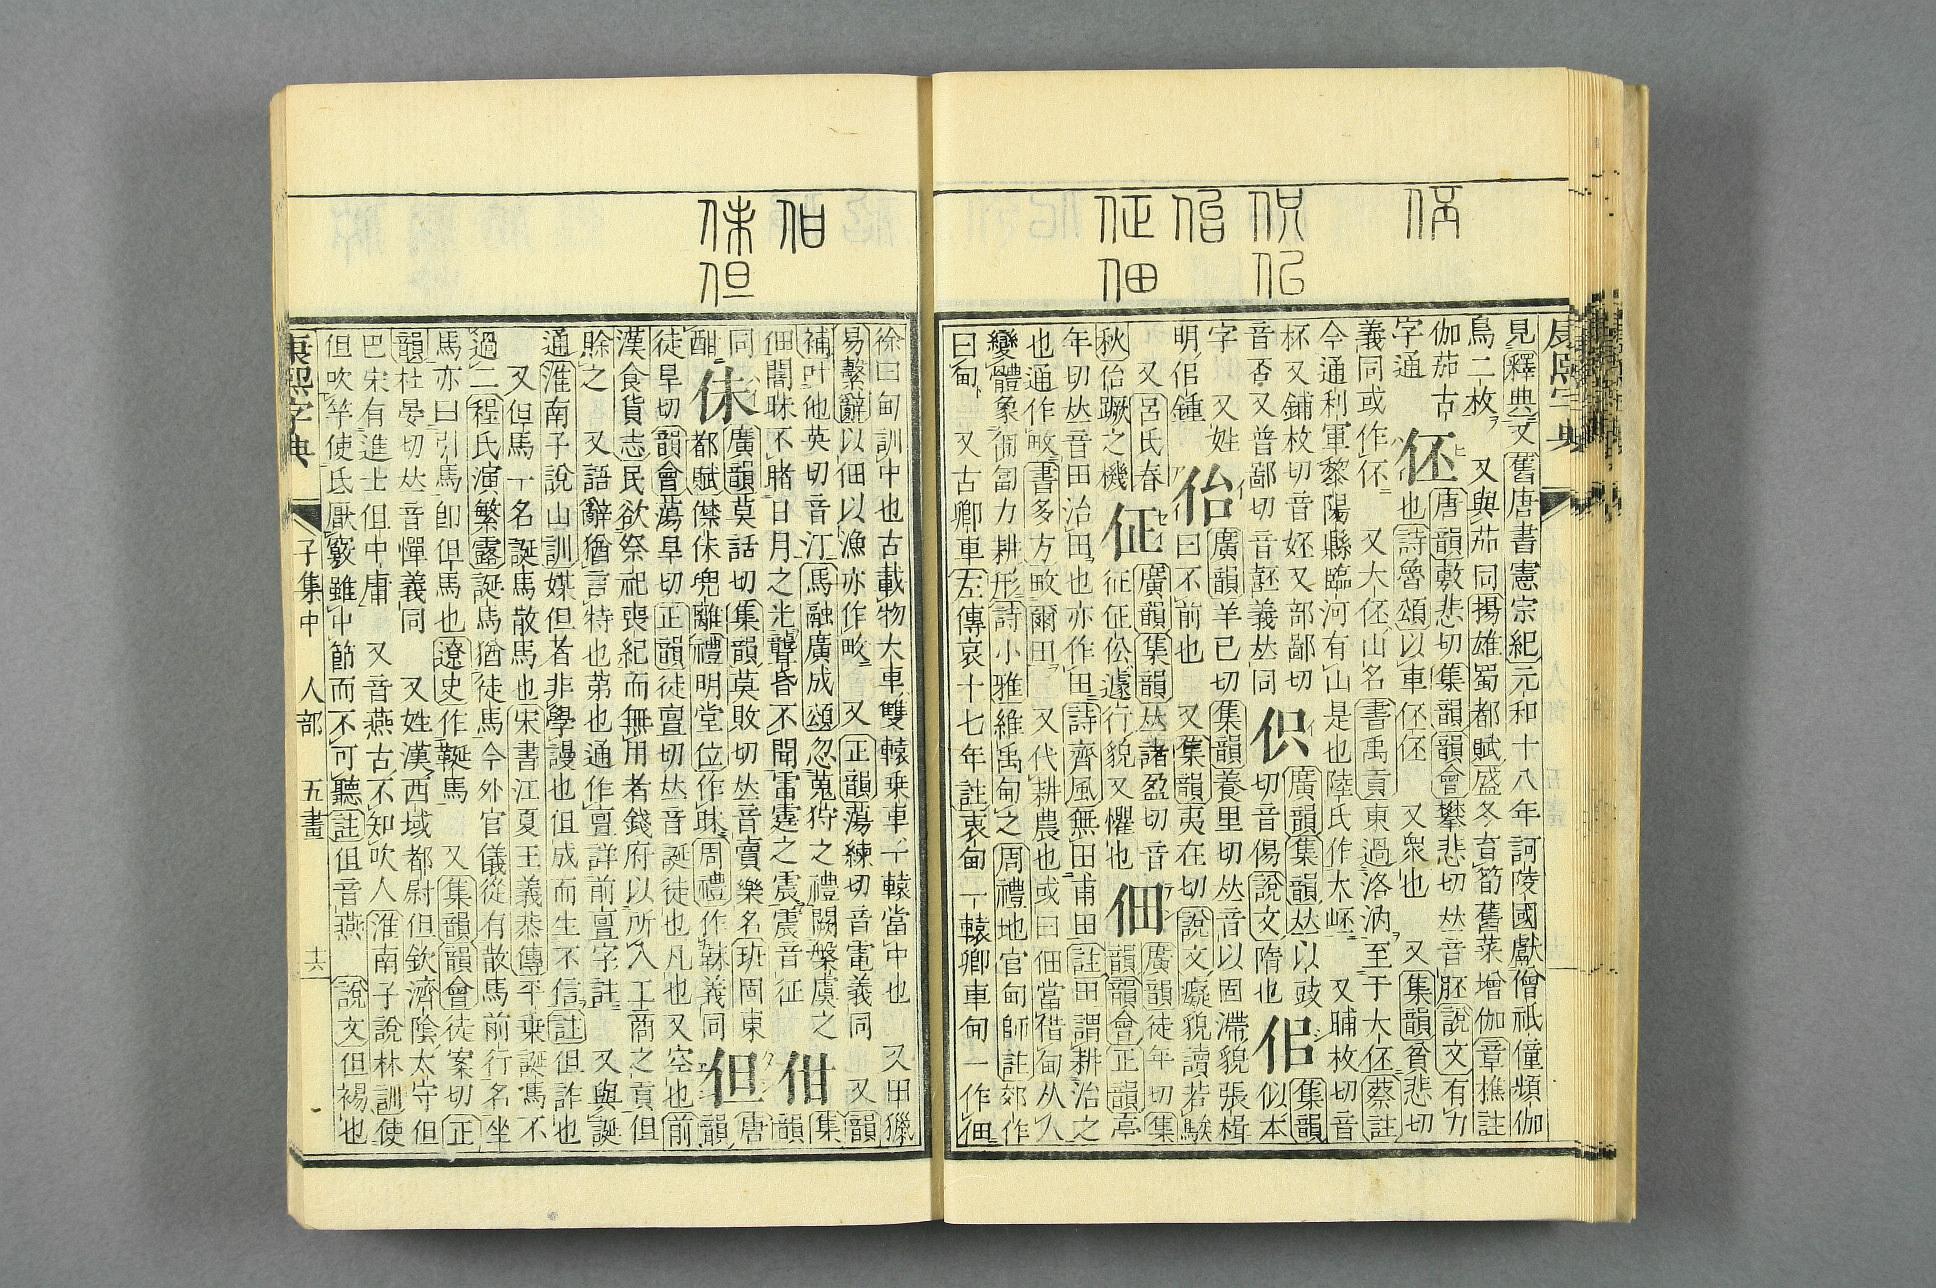 伾
伿佀
佁
佂佃
見釋典又舊唐書憲宗紀元和十八年訶陵國獻僧祇僮頻伽
鳥二枚 又與茄同揚雄蜀都賦盛冬育筍舊菜增伽章樵註
伽茄古
字通
伾
唐韻敷悲切集韻韻會攀悲切𠀤音胚說文有力
也詩魯頌以車伾伾 又衆也 又集韻貧悲切
義同或作伓 又大伾山名書禹貢東過洛汭至于大伾蔡註
今通利軍黎陽縣臨河有山是也陸氏作木岯 又晡枚切音
杯又鋪枚切音妚又部鄙切
音否又普鄙切音嚭義𠀤同
伿
廣韻集韻𠀤以豉
切音傷說文隋也
佀
集韻
似本
字 又姓
明佀鍾
佁
廣韻羊已切集韻養里切𠀤音以固滯貌張楫
曰不前也 又集韻夷在切說文癡貌讀若騃
又呂氏春
秋佁蹷之機
佂
廣韻集韻𠀤諸盈切音
征佂伀遽行貌又懼也
佃
廣韻徒年切集
韻韻會正韻亭
年切𠀤音田治田也亦作田詩齊風無田甫田註田謂耕治之
也通作畋書多方畋爾田 又代耕農也或曰佃當借甸从人
變體象匍匐力耕形詩小雅維禹甸之周禮地官甸師註郊作
曰甸 又古卿車左傳哀十七年註衷甸一轅卿車甸一作佃
佄
佅但
徐曰甸訓中也古載物大車雙轅乘車一轅當中也 又田獵
易繫辭以佃以漁亦作畋 又正韻蕩練切音電義同 又韻
補叶他英切音汀馬融廣成頌忽蒐狩之禮闕槃虞之
佃闇昧不睹日月之光聾昏不聞雷霆之震震音征
佄
集
韻
同
酣
佅
廣韻莫話切集韻莫敗切𠀤音賣樂名班固東
都賦僸佅兜離禮明堂位作昧周禮作韎義同
但
唐
韻
徒旱切韻會蕩旱切正韻徒亶切𠀤音誕徒也凡也又空也前
漢食貨志民欲祭祀喪紀而無用者錢府以所入工商之貢但
賖之 又語辭猶言特也第也通作亶詳前亶字註 又與誕
通淮南子說山訓媒但者非學謾也但成而生不信註但詐也
又但馬一名誕馬散馬也宋書江夏王義恭傳平乗誕馬不
過二程氏演繁露誕馬猶徒馬今外官儀從有散馬前行名坐
馬亦曰引馬卽但馬也遼史作䩥馬 又集韻韻會徒案切正
韻杜晏切𠀤音憚義同 又姓漢西域都尉但欽濟陰太守但
巴宋有進士但中庸 又音燕古不知吹人淮南子說林訓使
但吹竽使氐厭竅雖中節而不可聽註但音燕 說文但裼也
康熙字典 子集中 人部 五畫 十六